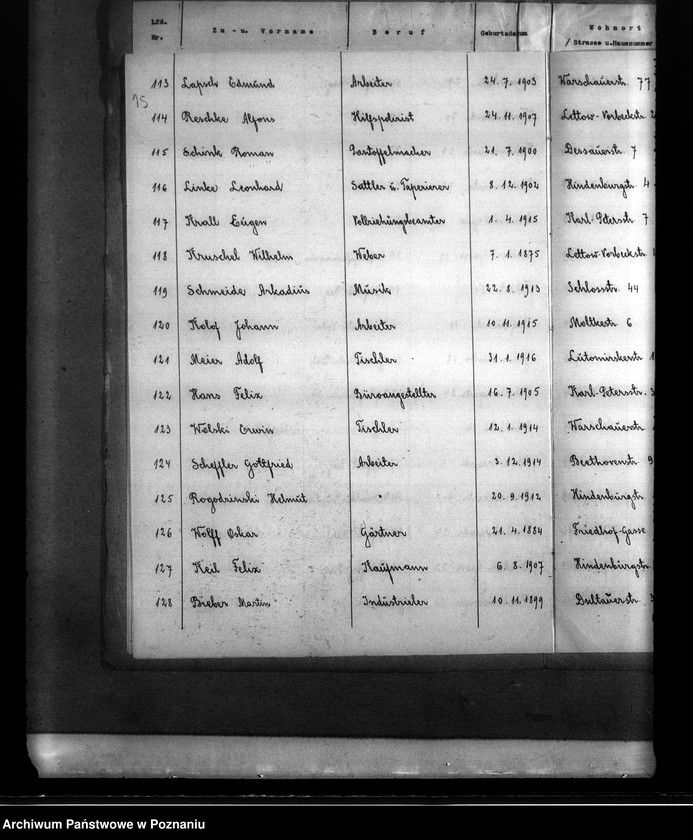 Lfd. Nr. Zu -u. Vorname Beruf Geburtsdatum Wohnort / Strasse u.Hausnummer
15
113 Lapsch Edmund Arbeiter 24. 7. 1903 Warschauerstr. 77
114 Reschke Alfons Hilfspolizist 24. 11. 1907 Lettow-Vorbeckstr.
115 Schink Roman Pantoffelmacher 21. 7. 1900 Dessauerstr. 7
116 Linke Leonhard Sattler u. Tapezierer 8. 12. 1902 Hindenburgstr. 4
117 Krall Eugen Vollziehungsbeamter 1. 4. 1915 Karl-Petersstr. 7
118 Kruschel Wilhelm Weber 7. 1. 1875 Lettow-Vorbeckstr.
119 Schmeide Arkadius Musik 22. 8. 1913 Schlosstr. 44
120 Kolof Johann Arbeiter 10. 11. 1915 Moltkestr. 6
121 Meier Adolf Tischler 31. 1. 1916 Lutomirskerstr.
122 Hans Felix Büroangestellter 16. 7. 1905 Karl-Petersstr.
123 Wolski Erwin Tischler 12. 1. 1914 Warschauerstr.
124 Scheffler Gottfried Arbeiter 3. 12. 1914 Beethovenstr. 9
125 Rogodzinski Helmut 20. 9. 1912 Hindenburgstr.
126 Wolff Oskar Gärtner 21. 4. 1884 Friedhof-Gasse
127 Keil Felix Kaufmann 6. 8. 1907 Hindenburgstr.
128 Bieber Martin Industrieler 10. 11. 1899 Bultauerstr.
Archiwum Państwowe w Poznaniu